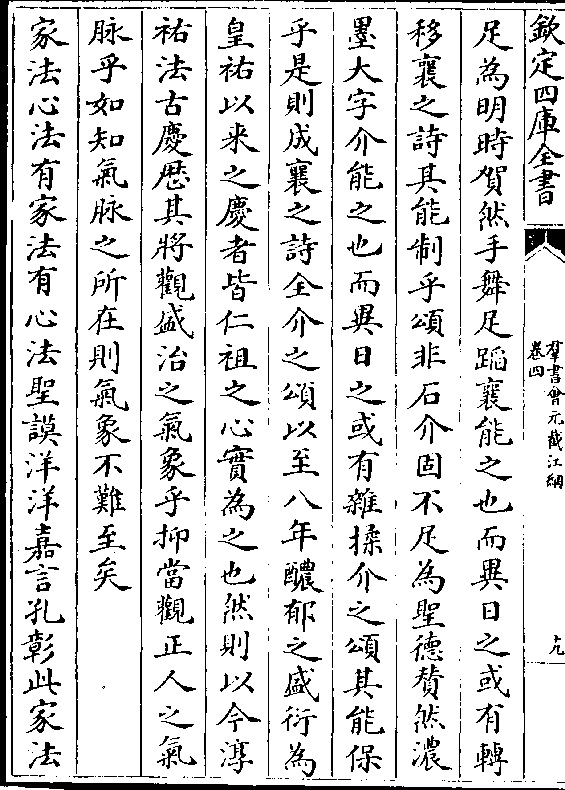 欽定四庫全書
羣書會元截江網
卷四
十九
足為明時賀然手舞足蹈襄能之也而異日之或有轉
移襄之詩其能制乎頌非石介固不足為聖德賛然濃
墨大字介能之也而異日之或有雜揉介之頌其能保
乎是則成襄之詩全介之頌以至八年醲郁之盛衍為
皇祐以來之慶者皆仁祖之心實為之也然則以今淳
祐法古慶厯其將觀盛治之氣象乎抑當觀正人之氣
脉乎如知氣脉之所在則氣象不難至矣
家法心法有家法有心法聖謨洋洋嘉言孔彰此家法